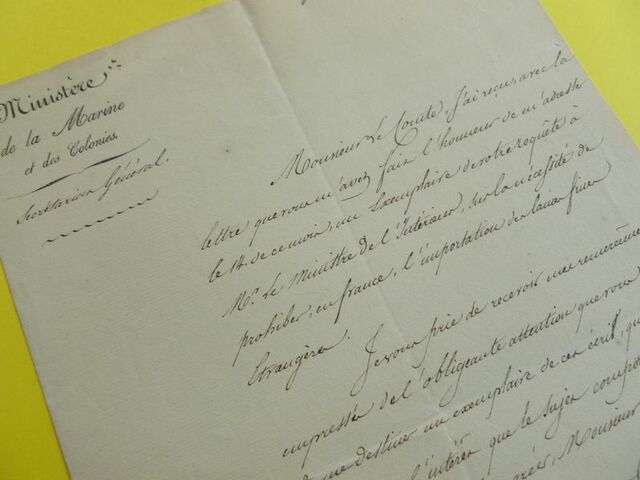 Ministère
de la Marine
et des Colonies.
Secrétariat Général.
Monsieur le Comte, J'ai reçu, avec la
lettre que vous m'avez fait l'honneur de m'adresser
le 14. de ce mois, un Exemplaire de votre requête à
Mr. le Ministre de l'Intérieur, sur la nécessité de
prohiber, en france, l'importation des laines fines
Etrangères.
Je vous prie de recevoir mes remerciemens
empressés de l'obligeante attention que vous
me destiner un exemplaire de cet écrit, qu
l'intérêt que le sujet comporte
agréer, Monsieur